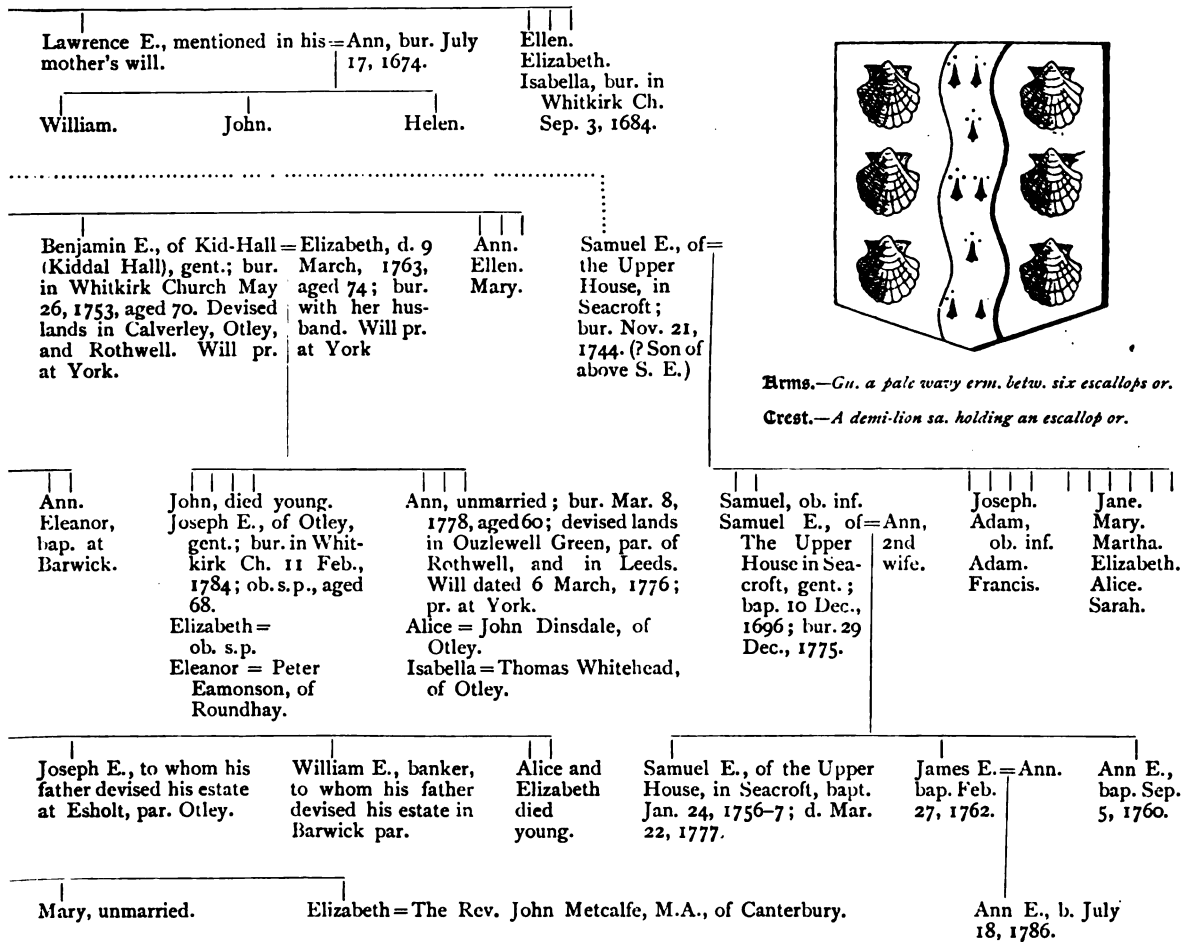 Lawrence E., mentioned in his=Ann, bur. July
mother's will.
17, 1674.
Ellen.
Elizabeth.
Isabella, bur. in
Whitkirk Ch.
Sep. 3, 1684.
William.
John.
Helen.
Benjamin E., of Kid-Hall
(Kiddal Hall), gent.; bur.
in Whitkirk Church May
26, 1753, aged 70. Devised
lands in Calverley, Otley,
and Rothwell. Will pr.
at York.
=Elizabeth, d. 9
March, 1763,
aged 74; bur.
with her hus-
band. Will pr.
at York
Ann.
Ellen.
Mary.
Samuel E., of=
the Upper
House, in
Seacroft;
bur. Nov. 21,
1744. (? Son of
above S. E.)
Arms.—Gu. a pale wavy erm. betw. six escallops or.
Crest.—A demi-lion sa. holding an escallop or.
Ann.
Eleanor,
bap. at
Barwick.
John, died young.
Joseph E., of Otley,
gent.; bur. in Whit-
kirk Ch. 11 Feb.,
1784; ob. s.p., aged
68.
Elizabeth=
ob. s.p.
Eleanor = Peter
Eamonson, of
Roundhay.
Ann, unmarried; bur. Mar. 8,
1778, aged 60; devised lands
in Ouzlewell Green, par. of
Rothwell, and in Leeds.
Will dated 6 March, 1776;
pr. at York.
Alice = John Dinsdale, of
Otley.
Isabella=Thomas Whitehead,
of Otley.
Samuel, ob. inf.
Samuel E., of=
The Upper
House in Sea-
croft, gent.;
bap. 10 Dec.,
1696; bur. 29
Dec., 1775.
Ann,
2nd
wife.
Joseph.
Adam,
ob. inf.
Adam.
Francis.
Jane.
Mary.
Martha.
Elizabeth.
Alice.
Sarah.
Joseph E., to whom his
father devised his estate
at Esholt, par. Otley.
William E., banker,
to whom his father
devised his estate in
Barwick par.
Alice and
Elizabeth
died
young.
Samuel E., of the Upper
House, in Seacroft, bapt.
Jan. 24, 1756–7; d. Mar.
22, 1777.
James E.=Ann.
bap. Feb.
27, 1762.
Ann E.,
bap. Sep.
5, 1760.
Mary, unmarried.
Elizabeth=The Rev. John Metcalfe, M.A., of Canterbury.
Ann E., b. July
18, 1786.